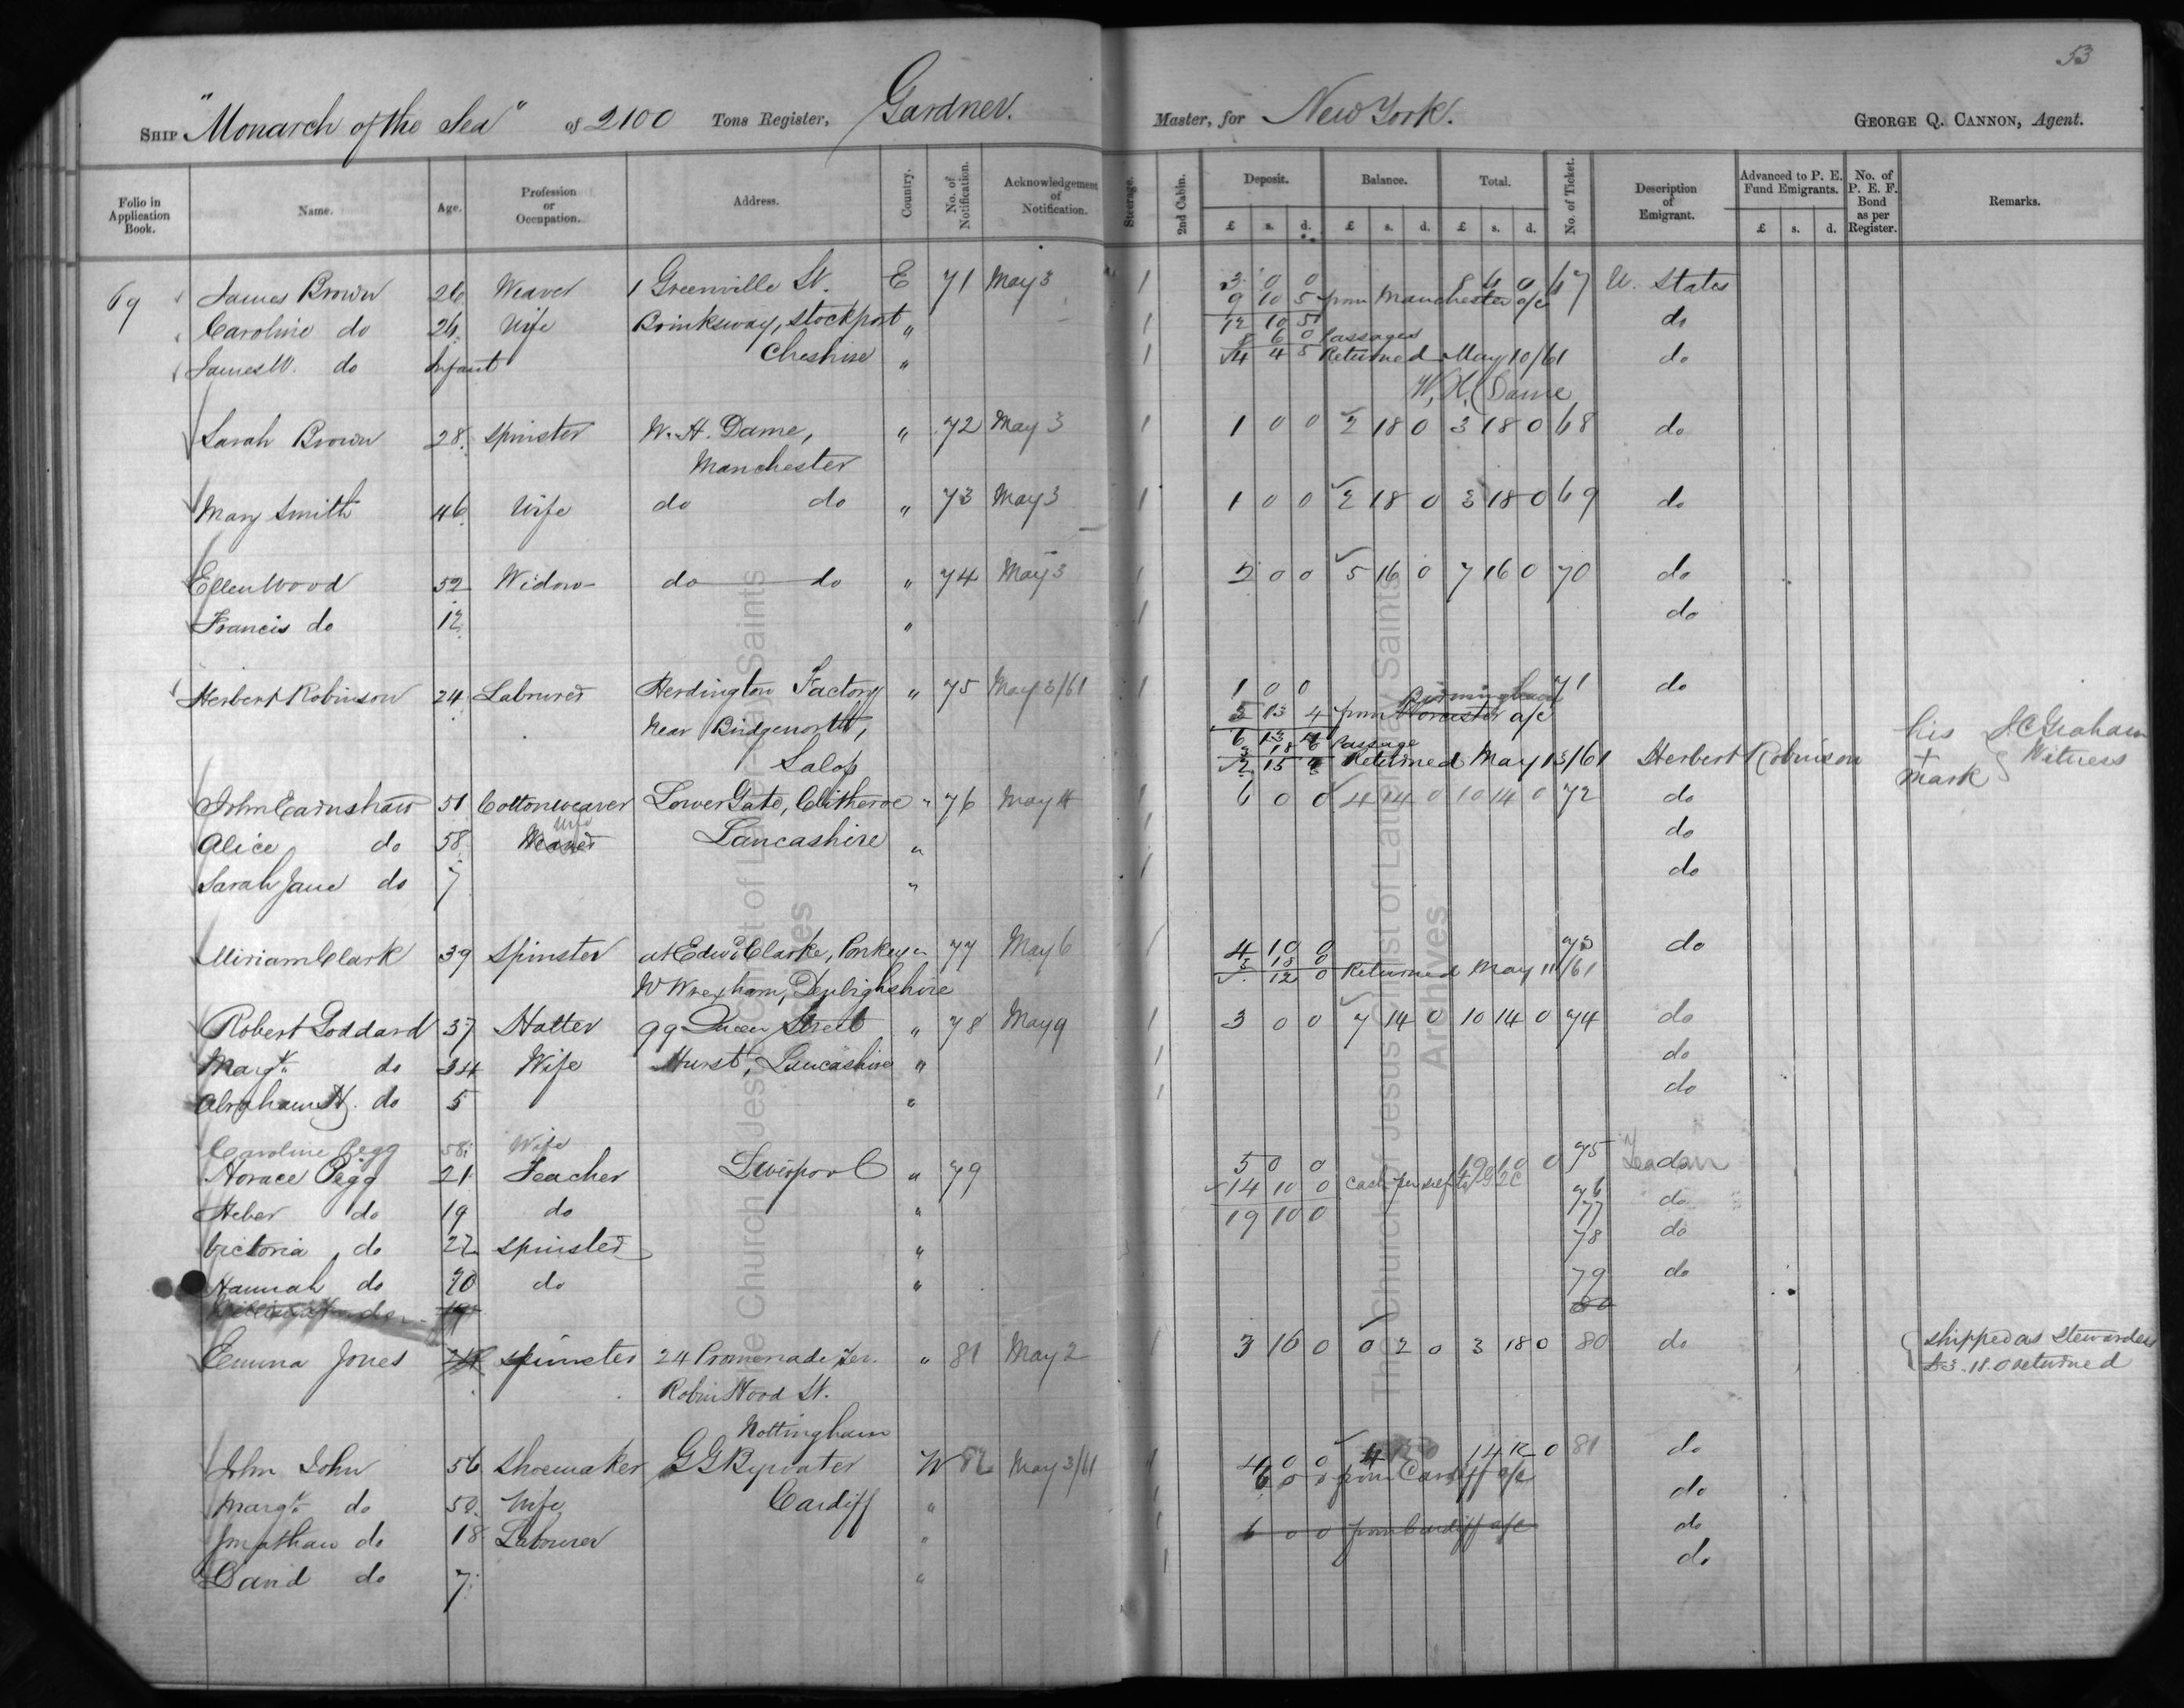 53
SHIP "Monarch of the Sea" of 2100 Tons Register, Gardner. Master, for New York. GEORGE Q. CANNON, Agent.
Folio in Application Book. Name. Age. Profession or Occupation. Address. Country. No. of Notification. Acknowledgement of Notification. Steerage. 2nd Cabin. Deposit. Balance. Total. No. of Ticket. Description of Emigrant. Advanced to P. E. Fund Emigrants. No. of P. E. F. Bond as per Register. Remarks.
£ s. d. £ s. d. £ s. d. £ s. d.
69 James Brown 26 Weaver 1 Greenville St. E 71 May 3 1 3 0 0 8 6 0 67 U. States
9 10 5 from Manchester a/c
Caroline do 26 Wife Brinksway, Stockport " 1 12 10 5 do
8 6 0 Passages
James W. do Infant Cheshire " 1 4 4 5 Returned May 10/61 do
W. H. Dame
Sarah Brown 28 Spinster W. H. Dame, " 72 May 3 1 1 0 0 2 18 0 3 18 0 68 do
Manchester
Mary Smith 46 Wife do do " 73 May 3 1 1 0 0 2 18 0 3 18 0 69 do
Ellen Wood 52 Widow do do " 74 May 3 1 2 0 0 5 16 0 7 16 0 70 do
Francis do 12 " 1 do
Herbert Robinson 24 Labourer Herdington Factory " 75 May 3/61 1 1 0 0 71 do
Near Bridgenorth, 5 13 4 from Worcester Birmingham a/c
Salop 6 13 4
3 18 Passage
2 15 4 Returned May 13/61 Herbert Robinson his + mark J C Graham Witness
John Earnshaw 51 Cottonweaver Lower Gate, Clitheroe " 76 May 4 1 6 0 0 4 14 0 10 14 0 72 do
Alice do 58 Weaver Wife Lancashire " 1 do
Sarah Jane do 7 " 1 do
Miriam Clark 39 Spinster at Edwd Clarke, Ponkey " 77 May 6 1 4 10 0 73 do
3 18 0
Nr Wrexham, Denbighshire 12 0 Returned May 11/61
Robert Goddard 37 Hatter 99 Queen Street " 78 May 9 1 3 0 0 7 14 0 10 14 0 74 do
Margt. do 34 Wife Hurst, Lancashire " 1 do
Abraham H. do 5 " 1 do
Caroline Pegg 58 Wife
Horace Pegg 21 Teacher Liverpool " 79 5 0 0 19 10 0 75 do
14 10 0 Cash per
Heber do 19 do " 19 10 0 76 do
77
Victoria do 22 Spinster " 78 do
Hannah do 20 do " 79 do
do 19 80
Emma Jones 24 Spinster 24 Promenade Ter. " 81 May 2 1 3 16 0 0 2 0 3 18 0 80 do shipped as Stewardess
Robin Hood St. £3. 18. 0 returned
Nottingham
John John 56 Shoemaker G G Bywater W 82 May 3/61 1 4 0 0 14 12 0 81 do
6 0 0 from Cardiff a/c
Margt. do 50 Wife Cardiff " 1 do
Jonathan do 18 Labourer " 1 6 0 0 from Cardiff a/c do
David do 7 " 1 do
The Church of Jesus Christ of Latter-day Saints
Archives
The Church of Jesus Christ of Latter-day Saints
Archives